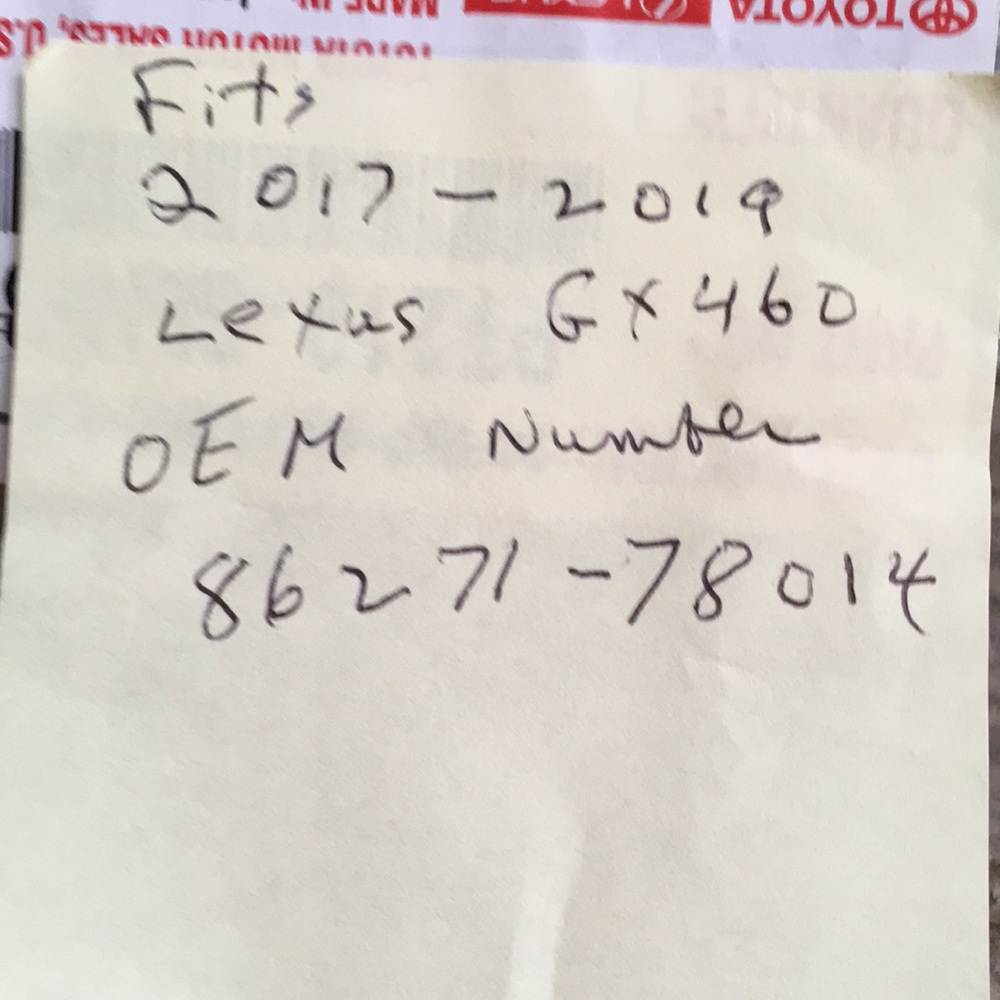 TOYOTA
MADE IN
TOYOTA MOTOR SALES, U.S
Fits
2017-2019
Lexus GX460
OEM Number
86271-78014